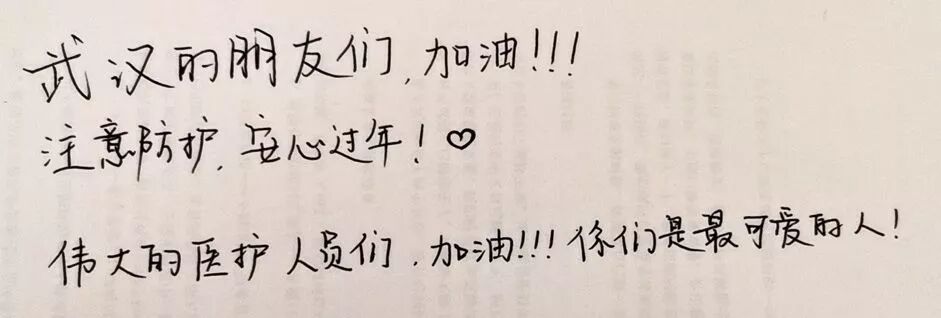 武汉的朋友们,加油!!!
注意防护,安心过年!♡
伟大的医护人员们,加油!!!你们是最可爱的人!